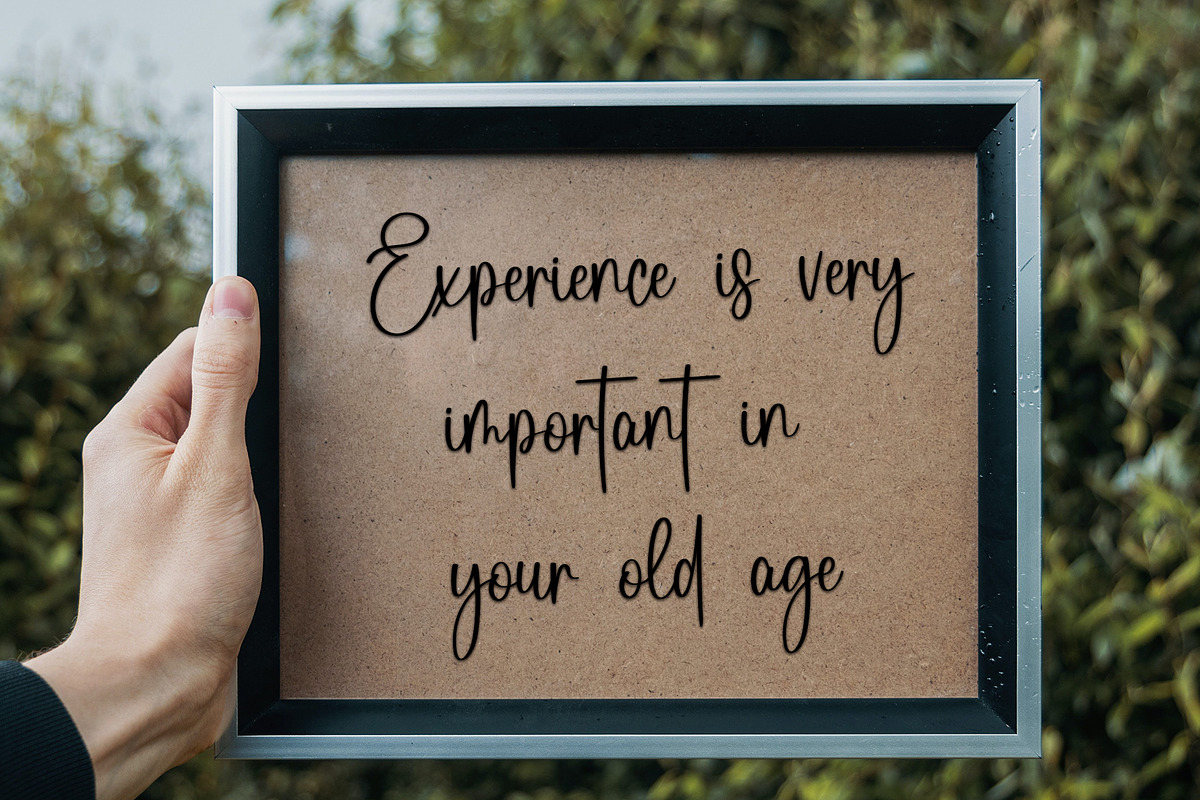 Experience is very
important in
your old age